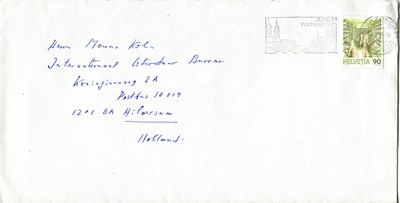 ZÜRICH
HELVETIA 90
Herrn Menno Kohn
Internationaal Literatuur Bureau
Koninginneweg 2A
Postbus 10014
1201 DA Hilversum
Holland.